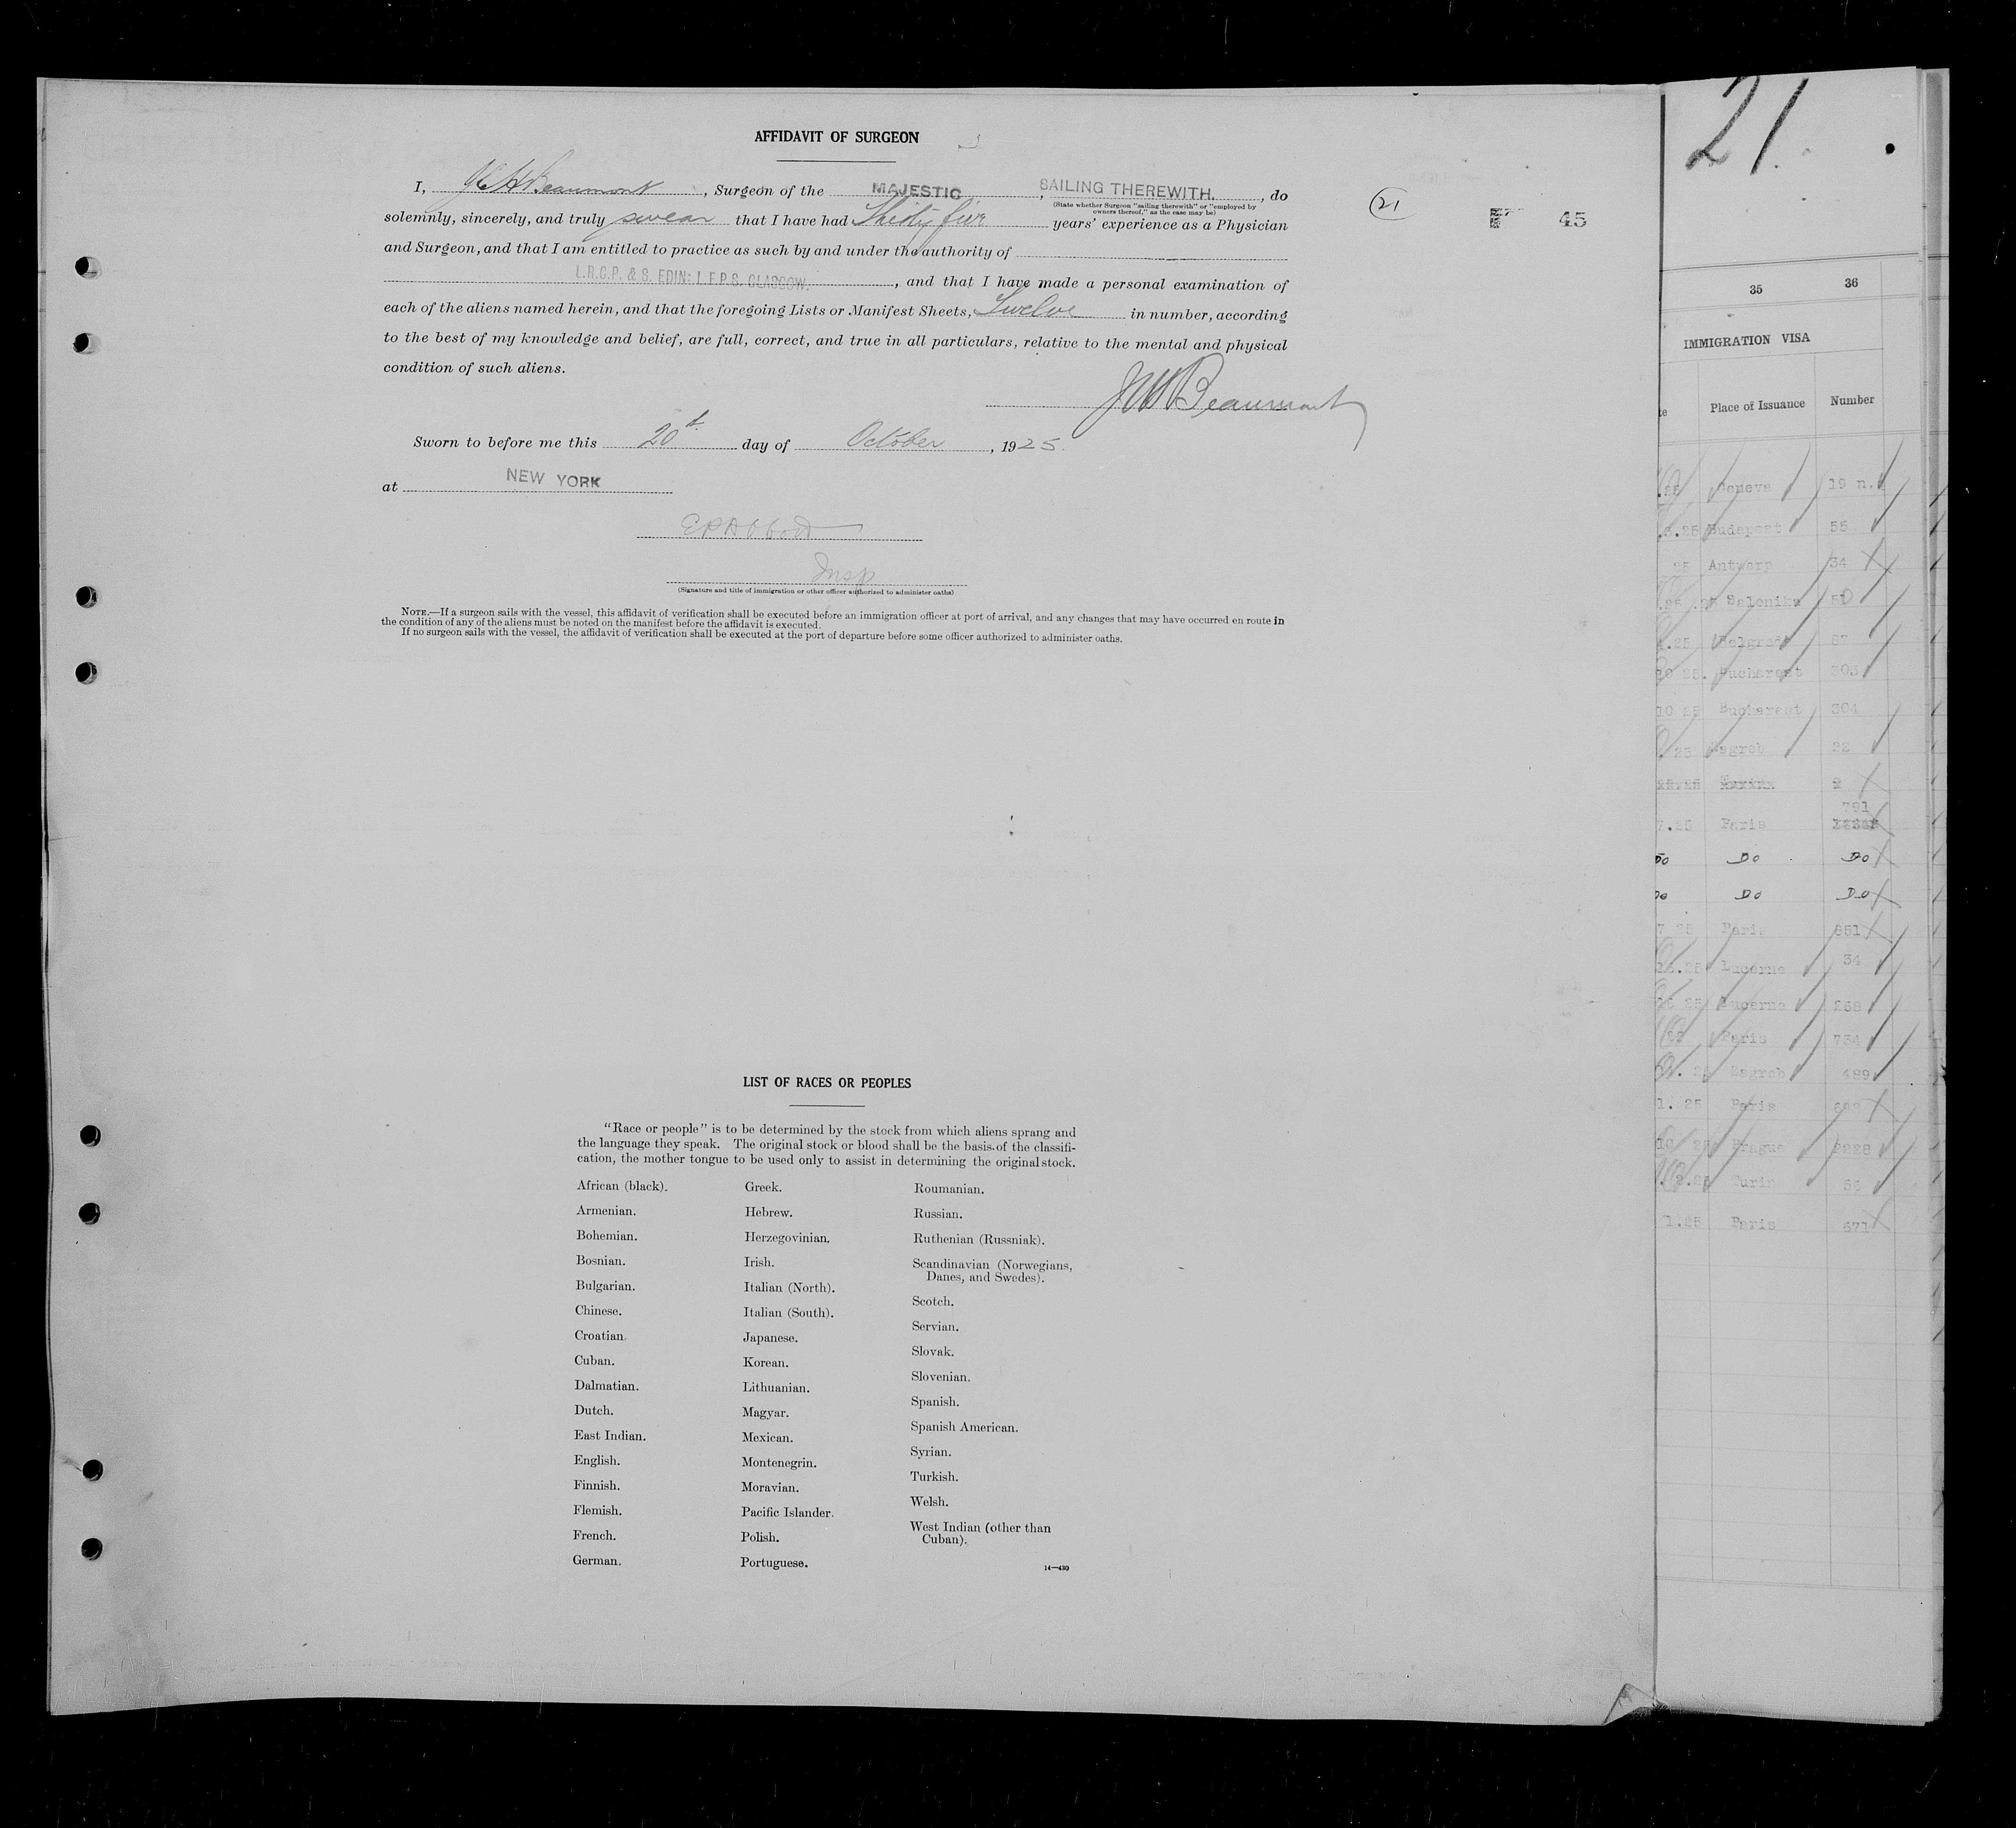 AFFIDAVIT OF SURGEON
I, Beaumont, Surgeon of the MAJESTIC, SAILING THEREWITH., do
(State whether Surgeon "sailing therewith" or "employed by
owners thereof," as the case may be)
solemnly, sincerely, and truly swear that I have had Thirty five years' experience as a Physician
and Surgeon, and that I am entitled to practice as such by and under the authority of
L.R.C.P. & S. EDIN: L.F.P.S. GLASGOW., and that I have made a personal examination of
each of the aliens named herein, and that the foregoing Lists or Manifest Sheets, Twelve in number, according
to the best of my knowledge and belief, are full, correct, and true in all particulars, relative to the mental and physical
condition of such aliens.
Beaumont
Sworn to before me this 20th day of October, 1925.
at NEW YORK
Insp
(Signature and title of immigration or other officer authorized to administer oaths)
NOTE.—If a surgeon sails with the vessel, this affidavit of verification shall be executed before an immigration officer at port of arrival, and any changes that may have occurred en route in
the condition of any of the aliens must be noted on the manifest before the affidavit is executed.
If no surgeon sails with the vessel, the affidavit of verification shall be executed at the port of departure before some officer authorized to administer oaths.
21
45
LIST OF RACES OR PEOPLES
"Race or people" is to be determined by the stock from which aliens sprang and
the language they speak. The original stock or blood shall be the basis of the classifi-
cation, the mother tongue to be used only to assist in determining the original stock.
African (black).
Armenian.
Bohemian.
Bosnian.
Bulgarian.
Chinese.
Croatian.
Cuban.
Dalmatian.
Dutch.
East Indian.
English.
Finnish.
Flemish.
French.
German.
Greek.
Hebrew.
Herzegovinian.
Irish.
Italian (North).
Italian (South).
Japanese.
Korean.
Lithuanian.
Magyar.
Mexican.
Montenegrin.
Moravian.
Pacific Islander.
Polish.
Portuguese.
Roumanian.
Russian.
Ruthenian (Russniak).
Scandinavian (Norwegians,
Danes, and Swedes).
Scotch.
Servian.
Slovak.
Slovenian.
Spanish.
Spanish American.
Syrian.
Turkish.
Welsh.
West Indian (other than
Cuban).
14—430
21
35 36
IMMIGRATION VISA
Place of Issuance Number
Geneva 19 n.
Budapest 55
25 Antwerp 34
Salonika 50
.25 Belgrad 87
25. Bucharest 303
10 25 Bucharest 304
25 Zagreb 22
2
791
7.25 Paris
Do Do Do
Do Do Do
7 25 Paris 651
.25 Lucerne 34
25 Lucerne 268
Paris 734
Zagreb 489
1. 25 Paris
10 25 Prague 2228
Turin 56
1.25 Paris 671